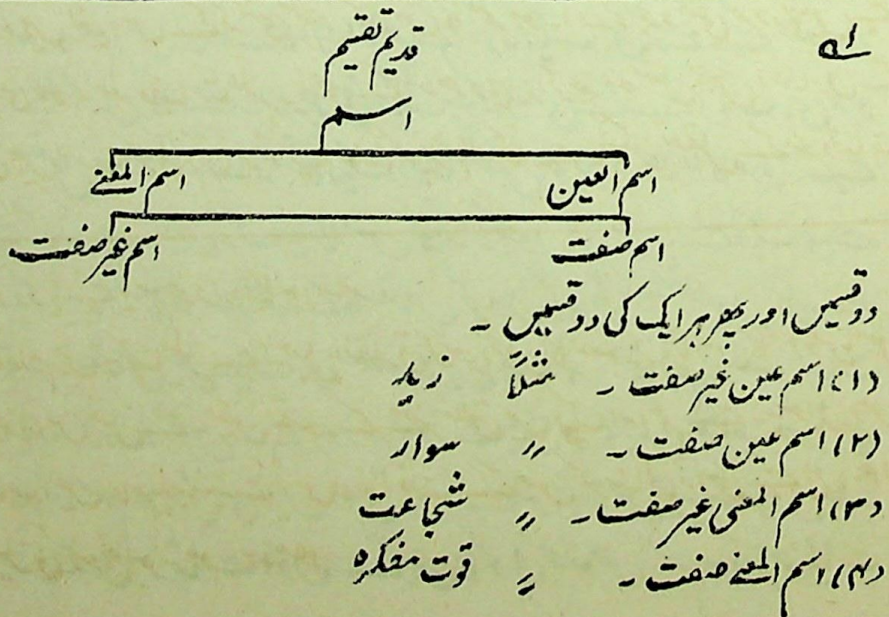 قدیم تقسیم
اسم
اسم العین اسم المعنے
اسم صفت اسم غیر صفت
دو قسمیں اور پھر ہر ایک کی دو قسمیں ۔
(۱) اسم عین غیر صفت ۔ مثلاً زید
(۲) اسم عین صفت ۔ 〃 سوار
(۳) اسم المعنی غیر صفت ۔ 〃 شجاعت
(۴) اسم المعنے صفت ۔ 〃 قوت مفکرہ